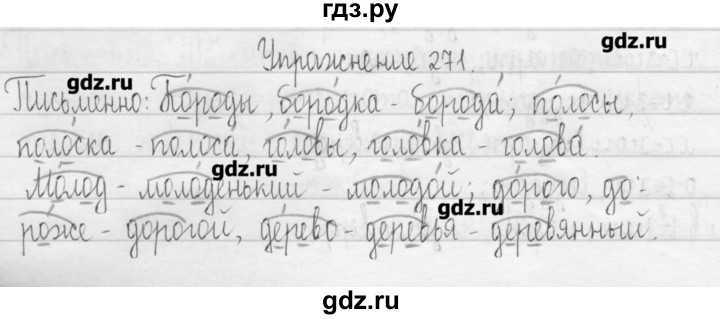 гдз.ру
Упражнение 271
gdz.ru
gdz.ru
Письменно: Бо́роды, боро́дка - борода́; по́лосы,
поло́ска - полоса́, го́ловы, голо́вка - голова́.
gdz.ru
Мо́лод - моло́денький - молодо́й; до́рого, до-
gdz.ru
ро́же - дорого́й, де́рево - дере́вья - деревя́нный.
gdz.ru